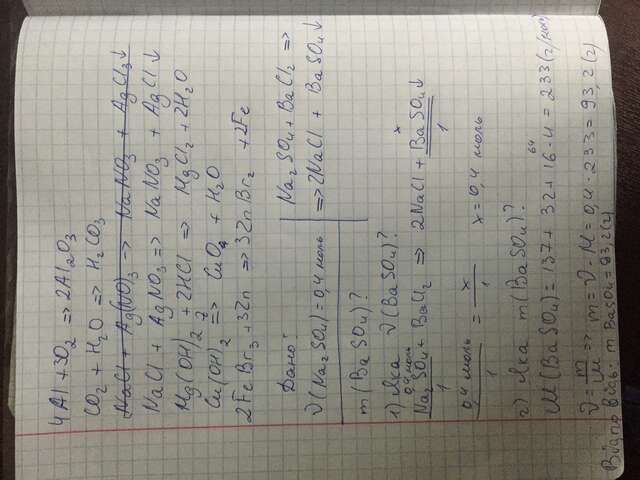 4Al + 3O₂ => 2Al₂O₃
CO₂ + H₂O => H₂CO₃
NaCl + Ag(NO)₃ -> NaNO₃ + AgCl₃↓
NaCl + AgNO₃ => NaNO₃ + AgCl↓
Mg(OH)₂ + 2HCl => MgCl₂ + 2H₂O
Cu(OH)₂ => CuO + H₂O
2FeBr₃ + 3Zn => 3ZnBr₂ + 2Fe
Дано:
ν(Na₂SO₄) = 0,4 моль
m(BaSO₄)?
Na₂SO₄ + BaCl₂ =>
=> 2NaCl + BaSO₄↓
1) Яка ν(BaSO₄)?
0,4 моль x
Na₂SO₄ + BaCl₂ => 2NaCl + BaSO₄↓
1 1
0,4 моль / 1 = x / 1 x = 0,4 моль
2) Яка m(BaSO₄)?
64
M(BaSO₄) = 137 + 32 + 16·4 = 233 (г/моль)
ν = m/M => m = ν · M = 0,4 · 233 = 93,2 (г)
Відповідь: m BaSO₄ = 93,2 (г)